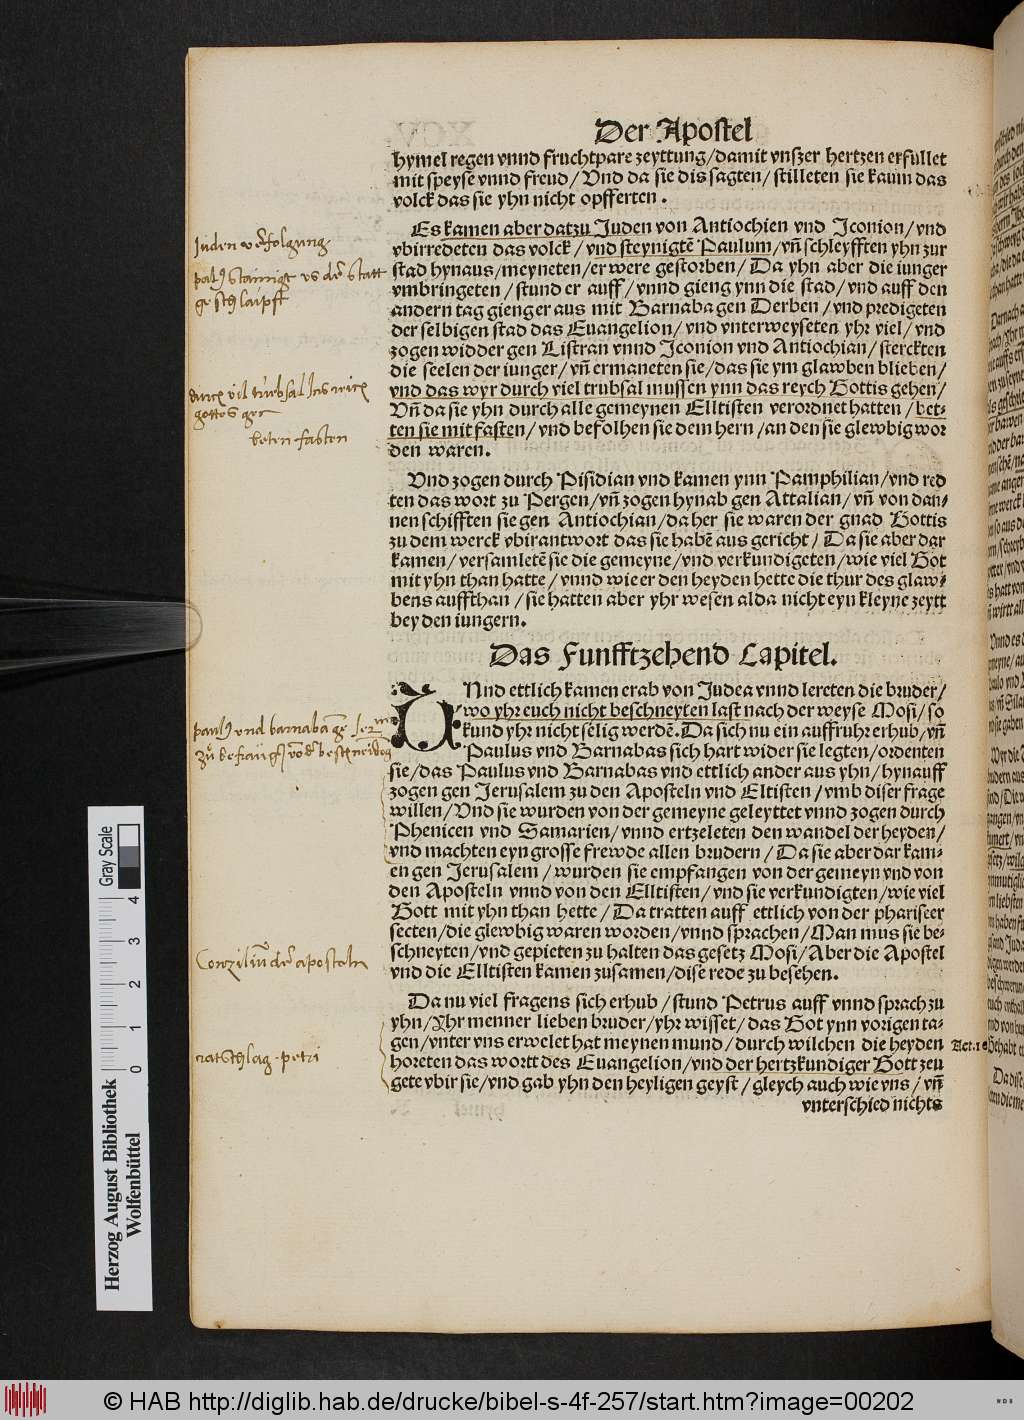 Der Apostel
hymel regen vnnd fruchtpare zeyttung/damit vnszer hertzen erfullet
mit speyse vnnd freud/ Vnd da sie dis sagten/ stilleten sie kaum das
volck das sie yhn nicht opfferten.
Es kamen aber datzu Juden von Antiochien vnd Iconion/ vnd
vbirredeten das volck/ vnd steynigtē Paulum/ vn̄ schleyfften yhn zur
stad hynaus/meyneten/er were gestorben/ Da yhn aber die iunger
vmbringeten/ stund er auff/ vnnd gieng ynn die stad/ vnd auff den
andern tag gieng er aus mit Barnaba gen Derben/ vnd predigeten
der selbigen stad das Euangelion/ vnd vnterweyseten yhr viel/ vnd
zogen widder gen Listran vnnd Iconion vnd Antiochian/ sterckten
die seelen der iunger/ vn̄ ermaneten sie/das sie ym glawben blieben/
vnd das wyr durch viel trubsal mussen ynn das reych Gottis gehen/
Vn̄ da sie yhn durch alle gemeynen Elltisten verordnet hatten/ bet-
ten sie mit fasten/ vnd befolhen sie dem hern/an den sie glewbig wor
den waren.
Vnd zogen durch Pisidian vnd kamen ynn Pamphilian/vnd red
ten das wort zu Pergen/vn̄ zogen hynab gen Attalian/ vn̄ von dan-
nen schifften sie gen Antiochian/da her sie waren der gnad Gottis
zu dem werck vbirantwort das sie habē aus gericht/ Da sie aber dar
kamen/ versamletē sie die gemeyne/vnd verkundigeten/wie viel Got
mit yhn than hatte/ vnnd wie er den heyden hette die thur des glaw-
bens auffthan/sie hatten aber yhr wesen alda nicht eyn kleyne zeytt
bey den iungern.
Das Funfftzehend Capitel.
VNnd ettlich kamen erab von Judea vnnd lereten die bruder/
wo yhr euch nicht beschneyten last nach der weyse Mosi/so
kund yhr nicht selig werdē. Da sich nu ein auffruhr erhub/vn̄
Paulus vnd Barnabas sich hart wider sie legten/ordenten
sie/das Paulus vnd Barnabas vnd ettlich ander aus yhn/hynauff
zogen gen Jerusalem zu den Aposteln vnd Eltisten/vmb diser frage
willen/ Vnd sie wurden von der gemeyne geleyttet vnnd zogen durch
Phenicen vnd Samarien/ vnnd ertzeleten den wandel der heyden/
vnd machten eyn grosse frewde allen brudern/ Da sie aber dar kam-
en gen Jerusalem/ wurden sie empfangen von der gemeyn vnd von
den Aposteln vnnd von den Elltisten/ vnd sie verkundigten/wie viel
Gott mit yhn than hette/ Da tratten auff ettlich von der phariseer
secten/die glewbig waren worden/vnnd sprachen/ Man mus sie be-
schneyten/vnd gepieten zu halten das gesetz Mosi/ Aber die Apostel
vnd die Elltisten kamen zusamen/dise rede zu besehen.
Da nu viel fragens sich erhub/ stund Petrus auff vnnd sprach zu
yhn/Yhr menner lieben bruder/yhr wisset/das Got ynn vorigen ta-
gen/vnter vns erwelet hat meynen mund/ durch wilchen die heyden
horeten das wortt des Euangelion/vnd der hertzkundiger Gott zeu
gete vbir sie/vnd gab yhn den heyligen geyst/ gleych auch wie vns/ vn̄
vnterschied nichts
Juden verfolgung
geschlaipfft
beten fasten
Conzilium der aposteln
ratschlag petri
Herzog August Bibliothek
Wolfenbüttel
Gray Scale
0 1 2 3 4
© HAB http://diglib.hab.de/drucke/bibel-s-4f-257/start.htm?image=00202